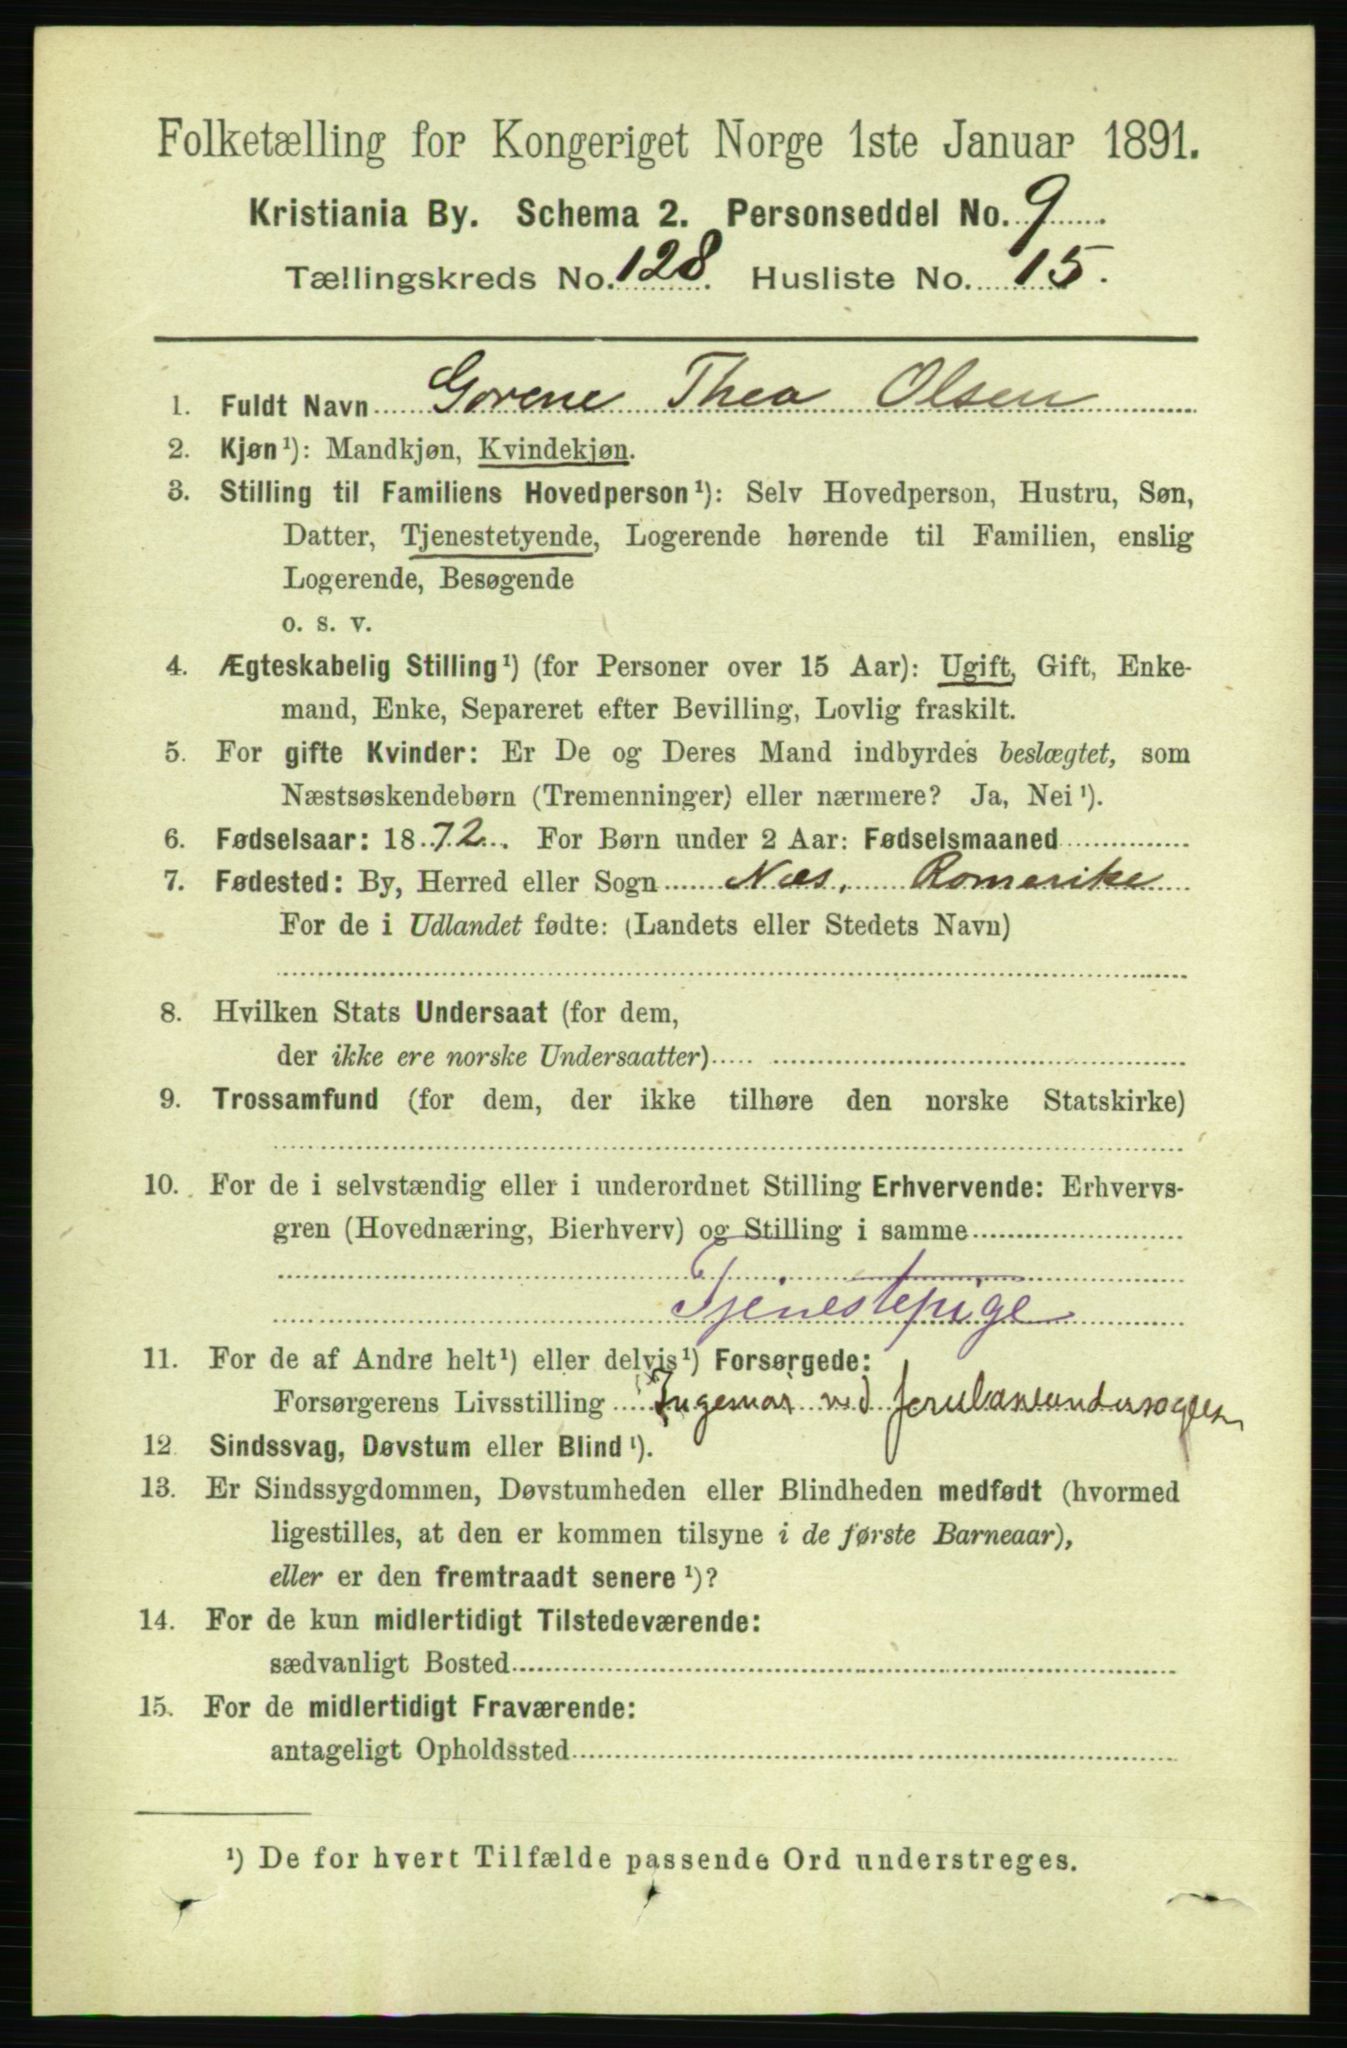 Folketælling for Kongeriget Norge 1ste Januar 1891.
Kristiania By. Schema 2. Personseddel No. 9
Tællingskreds No. 128. Husliste No. 15.
1. Fuldt Navn Gorene Thea Olsen
2. Kjøn¹): Mandkjøn, Kvindekjøn.
3. Stilling til Familiens Hovedperson¹): Selv Hovedperson, Hustru, Søn,
Datter, Tjenestetyende, Logerende hørende til Familien, enslig
Logerende, Besøgende
o. s. v.
4. Ægteskabelig Stilling¹) (for Personer over 15 Aar): Ugift, Gift, Enke-
mand, Enke, Separeret efter Bevilling, Lovlig fraskilt.
5. For gifte Kvinder: Er De og Deres Mand indbyrdes beslægtet, som
Næstsøskendebørn (Tremenninger) eller nærmere? Ja, Nei¹).
6. Fødselsaar: 1872. For Børn under 2 Aar: Fødselsmaaned
7. Fødested: By, Herred eller Sogn Næs, Romerike
For de i Udlandet fødte: (Landets eller Stedets Navn)
8. Hvilken Stats Undersaat (for dem,
der ikke ere norske Undersaatter)
9. Trossamfund (for dem, der ikke tilhøre den norske Statskirke)
10. For de i selvstændig eller i underordnet Stilling Erhvervende: Erhvervs-
gren (Hovednæring, Bierhverv) og Stilling i samme
Tjenestepige
11. For de af Andre helt¹) eller delvis¹) Forsørgede:
Forsørgerens Livsstilling ved
12 Sindssvag, Døvstum eller Blind¹).
13. Er Sindssygdommen, Døvstumheden eller Blindheden medfødt (hvormed
ligestilles, at den er kommen tilsyne i de første Barneaar),
eller er den fremtraadt senere¹)?
14. For de kun midlertidigt Tilstedeværende:
sædvanligt Bosted
15. For de midlertidigt Fraværende:
antageligt Opholdssted
¹) De for hvert Tilfælde passende Ord understreges.